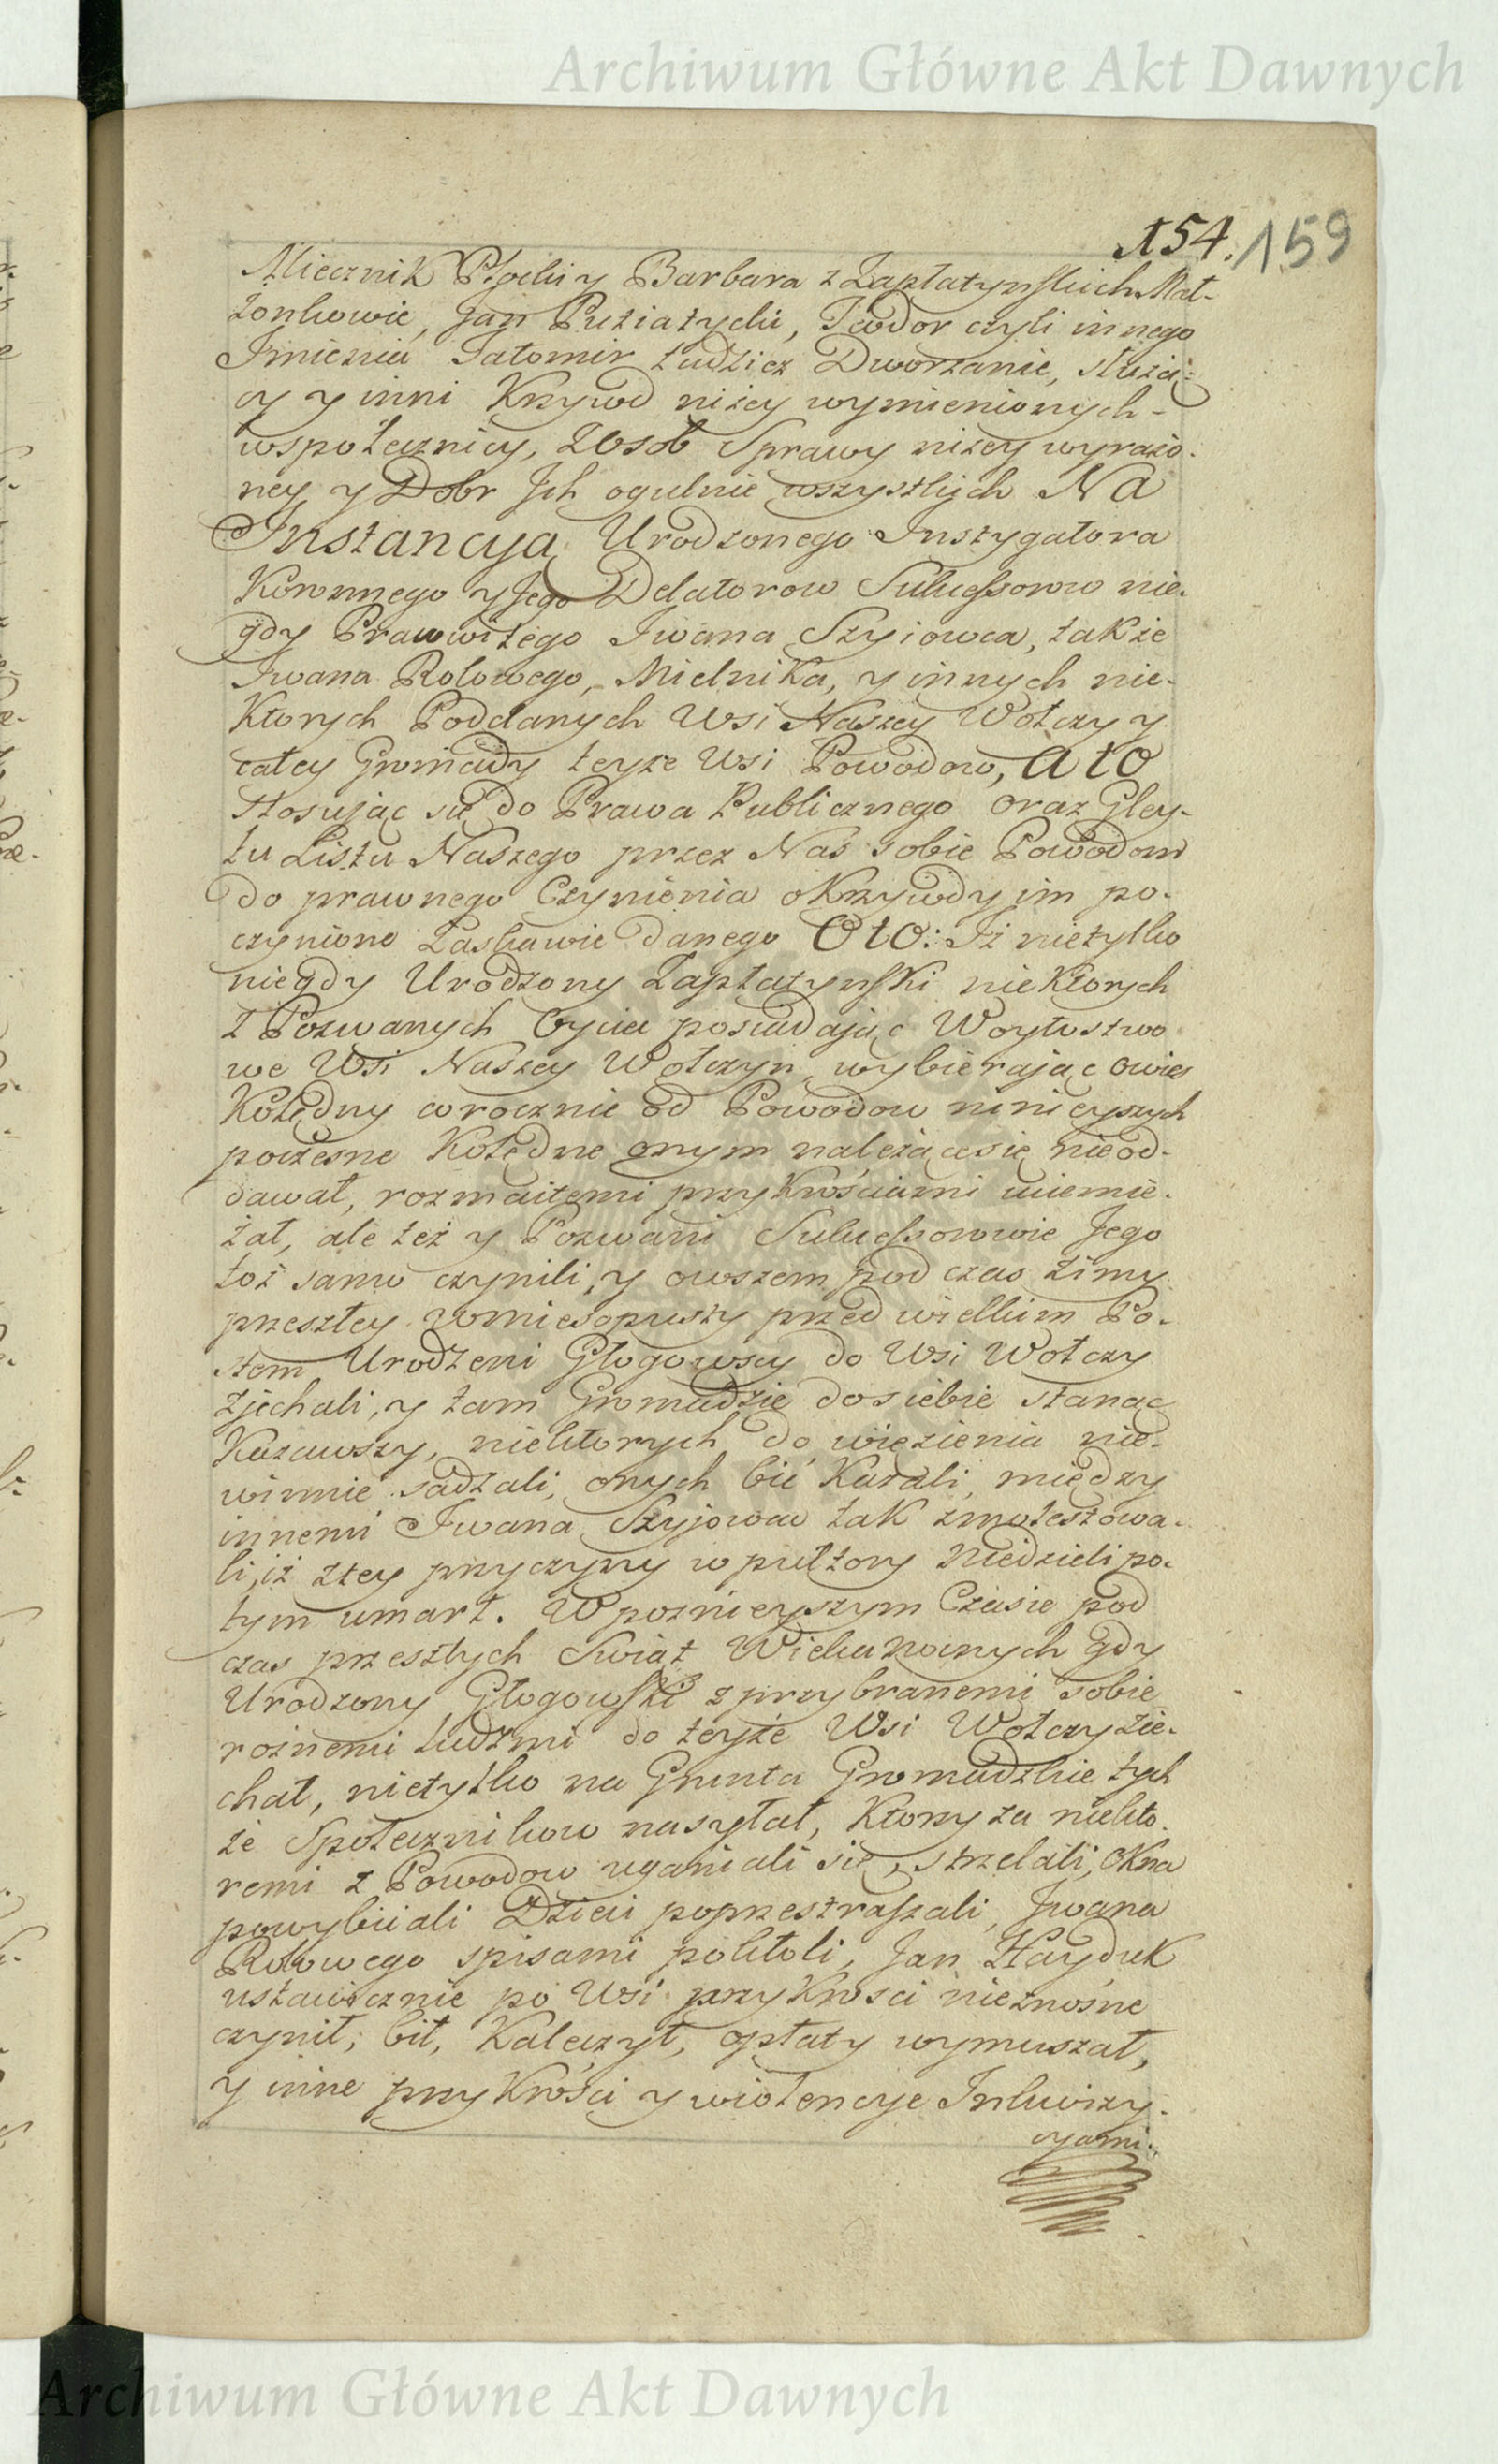 Archiwum Główne Akt Dawnych
154. 159
Miecznik Płocki y Barbara z Zapłatynskich Mał-
żonkowie, Jan Puziatycki, Teodor czyli innego
Imienia Jatomir Ludzicz Dworzanie, służą-
cy y inni Krzywd niżey wymienionych
wspołecznicy, z Osob Sprawy niżey wyrażo-
ney y Dobr Ich ogulnie wszystkich Na
Instancya Urodzonego Instygatora
Koronnego y Jego Delatorow Sukcessorow nie-
gdy Pracowitego Iwana Szyiowca, także
Iwana Rolowego, Mielnika, y innych nie-
ktorych Poddanych Wsi Naszey Wotczy y
całey Gromady teyże Wsi Powodow, a to
stosując się do Prawa Publicznego oraz Gley-
tu Listu Naszego przez Nas sobie Powodom
do prawnego Czynienia o Krzywdy im po-
czynione Łaskawie danego Oto: Iż nietylko
niegdy Urodzony Zapłatynski niektorych
z Pozwanych Oyciec posiadając Woytostwo
we Wsi Naszey Wotczyn wybierając owies
Kolędny corocznie od Powodow ninieyszych
poczesne Kolędne onym należące się nie od-
dawał, rozmaitemi przykrościami uciemię-
żał, ale też y Pozwani Sukcessorowie Jego
toż samo czynili, y owszem pod czas zimy
przeszłey w miesopusty przed wielkim Po-
stem Urodzeni Głogowscy do Wsi Wotczy
Zjechali, y tam Gromadzie do siebie stanąć
Kazawszy, niektorych do więzienia nie-
winnie sadzali, onych bić Kazali, między
innemi Iwana Szyjowca tak zmolestowa-
li, iż z tey przyczyny w pułtory Niedzieli po-
tym umarł. W poznieyszym Czasie pod
czas przeszłych Swiąt Wielkanocnych gdy
Urodzony Głogowski z przybranemi sobie
rożnemi Ludzmi do teyże Wsi Wotczy zie-
chał, nietylko na Grunta Gromadzkie tych
że Społecznikow nasyłał, Ktorzy za niekto-
remi z Powodow uganiali się, strzelali, okna
powybiiali Dzieci poprzestraszali, Iwana
Rolowego spisami pokłoli, Jan Hayduk
ustawicznie po Wsi przykrosci nieznośne
czynił, bił, Kaleczył, opłaty wymuszał,
y inne przykrości y wiolencye Inkwizy-
cyami.
Archiwum Główne Akt Dawnych